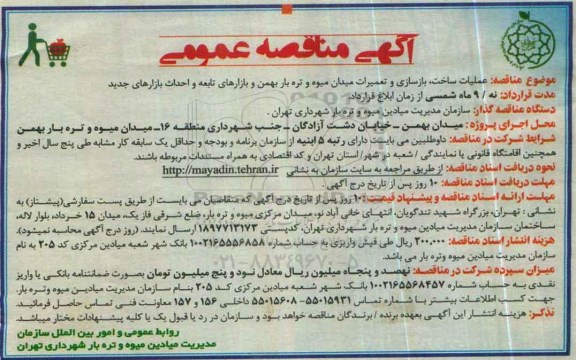 آگهی مناقصه عمومی
موضوع مناقصه: عملیات ساخت، بازسازی و تعمیرات میدان میوه و تره بار بهمن و بازارهای تابعه و احداث بازارهای جدید
مدت قرارداد: نه / ۹ ماه شمسی از زمان ابلاغ قرارداد.
دستگاه مناقصه گذار: سازمان مدیریت میادین میوه و تره بار شهرداری تهران.
محل اجرای پروژه: میدان بهمن ـ خیابان دشت آزادگان ـ جنب شهرداری منطقه ۱۶ـ میدان میوه و تره بار بهمن
شرایط شرکت در مناقصه: داوطلبین می بایست دارای رتبه ۵ ابنیه از سازمان برنامه و بودجه و حداقل یک سابقه کار مشابه طی پنج سال اخیر و
همچنین اقامتگاه قانونی یا نمایندگی / شعبه در شهر/ استان تهران و کد اقتصادی به همراه مستندات مربوطه باشند.
نحوه دریافت اسناد مناقصه: از طریق مراجعه به سایت سازمان به نشانی http://mayadin.tehran.ir
مهلت دریافت اسناد مناقصه: ۱۰ روز پس از تاریخ درج آگهی.
مهلت ارائه اسناد مناقصه و پیشنهاد قیمت: ۱۰ روز پس از تاریخ درج آگهی که متقاضیان می بایست از طریق پست سفارشی(پیشتاز) به
نشانی: تهران، بزرگراه شهید تندگویان، انتهای خانی آباد نو، میدان مرکزی میوه و تره بار، ضلع شرقی فاز یک، میدان ۱۵ خرداد، بلوار لاله،
ساختمان سازمان مدیریت میادین میوه و تره بار شهرداری تهران، کدپستی ۱۸۹۷۷۱۳۱۷۳ ارسال نمایند. (روز درج آگهی محاسبه نمیشود).
هزینه انتشار اسناد مناقصه: ۲۰۰.۰۰۰ ریال طی فیش واریزی به حساب شماره ۱۰۰۲۱۶۵۵۵۶۸۵۸ بانک شهر شعبه میادین مرکزی کد ۲۰۵ به نام
سازمان مدیریت میادین میوه وتره بار می باشد.
میزان سپرده شرکت در مناقصه: نهصد و پنجاه میلیون ریال معادل نود و پنج میلیون تومان بصورت ضمانتنامه بانکی یا واریز
نقدی به حساب شماره ۱۰۰۲۱۶۵۵۶۸۴۵۷ بانک شهر شعبه میادین مرکزی کد ۲۰۵ بنام سازمان مدیریت میادین میوه وتره بار.
جهت کسب اطلاعات بیشتر با شماره تماس ۵۵۰۱۵۹۳۱- ۵۵۰۱۵۶۰۸ داخلی ۱۵۶ و ۱۵۷ معاونت فنی تماس حاصل فرمائید.
تذکر: هزینه انتشار این آگهی بعهده برنده / برندگان مناقصه خواهد بود و سازمان در رد یا قبول یک یا کلیه پیشنهادات مختار میباشد.
روابط عمومی و امور بین الملل سازمان
مدیریت میادین میوه و تره بار شهرداری تهران
۰۲۱-۸۸۳۴۹۶۷۰-۵